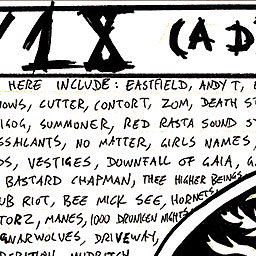 '18 (A D
HERE INCLUDE: EASTFIELD, ANDY T,
CUTTER, CONTORT, ZOM, DEATH
SUMMONER, RED RASTA SOUND
NO MATTER, GIRLS NAMES,
VESTIGES, DOWNFALL OF GAIA,
BASTARD CHAPMAN, THEE HIGHER BEINGS,
RIOT, BEE MICK SEE, HORNETS
MANES, 1000 DRUNKEN NIGHTS
GNARWOLVES, DRIVEWAY,